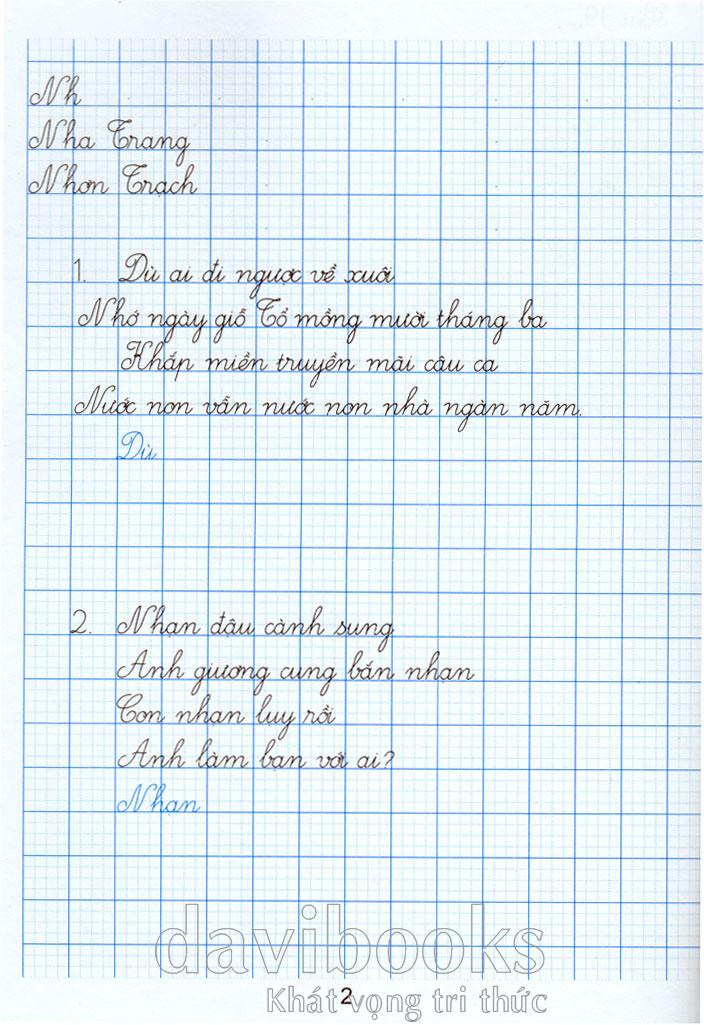 Nh
Nha Trang
Nhơn Trạch
1. Dù ai đi ngược về xuôi
Nhớ ngày giỗ Tổ mồng mười tháng ba
Khắp miền truyền mãi câu ca
Nước non vẫn nước non nhà ngàn năm.
Dù
2. Nhạn đậu cành sung
Anh giương cung bắn nhạn
Con nhạn luy rồi
Anh làm bạn với ai?
Nhạn
davibooks
Khát vọng tri thức
2